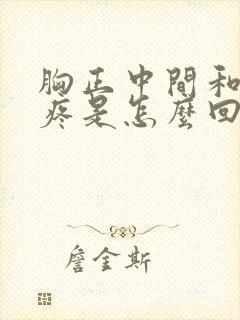 胸正中間和
疼是怎麼回
詹金斯